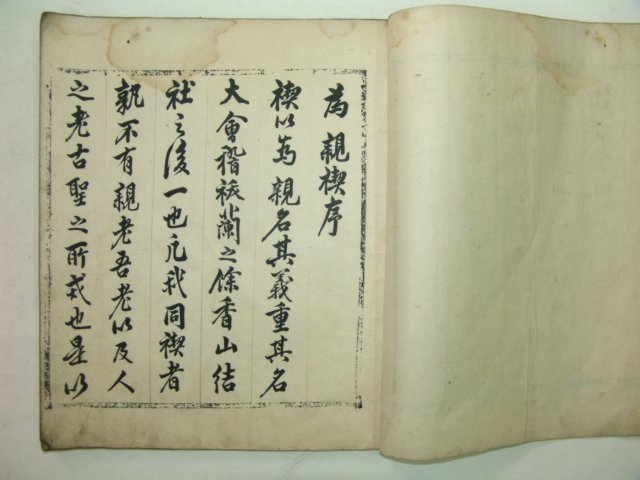 為親稧序
稧以為親名其義重其名
大會稽祓蘭之餘香山結
社之後一也凡我同稧者
孰不有親老吾老以及人
之老古聖之所戒也是以